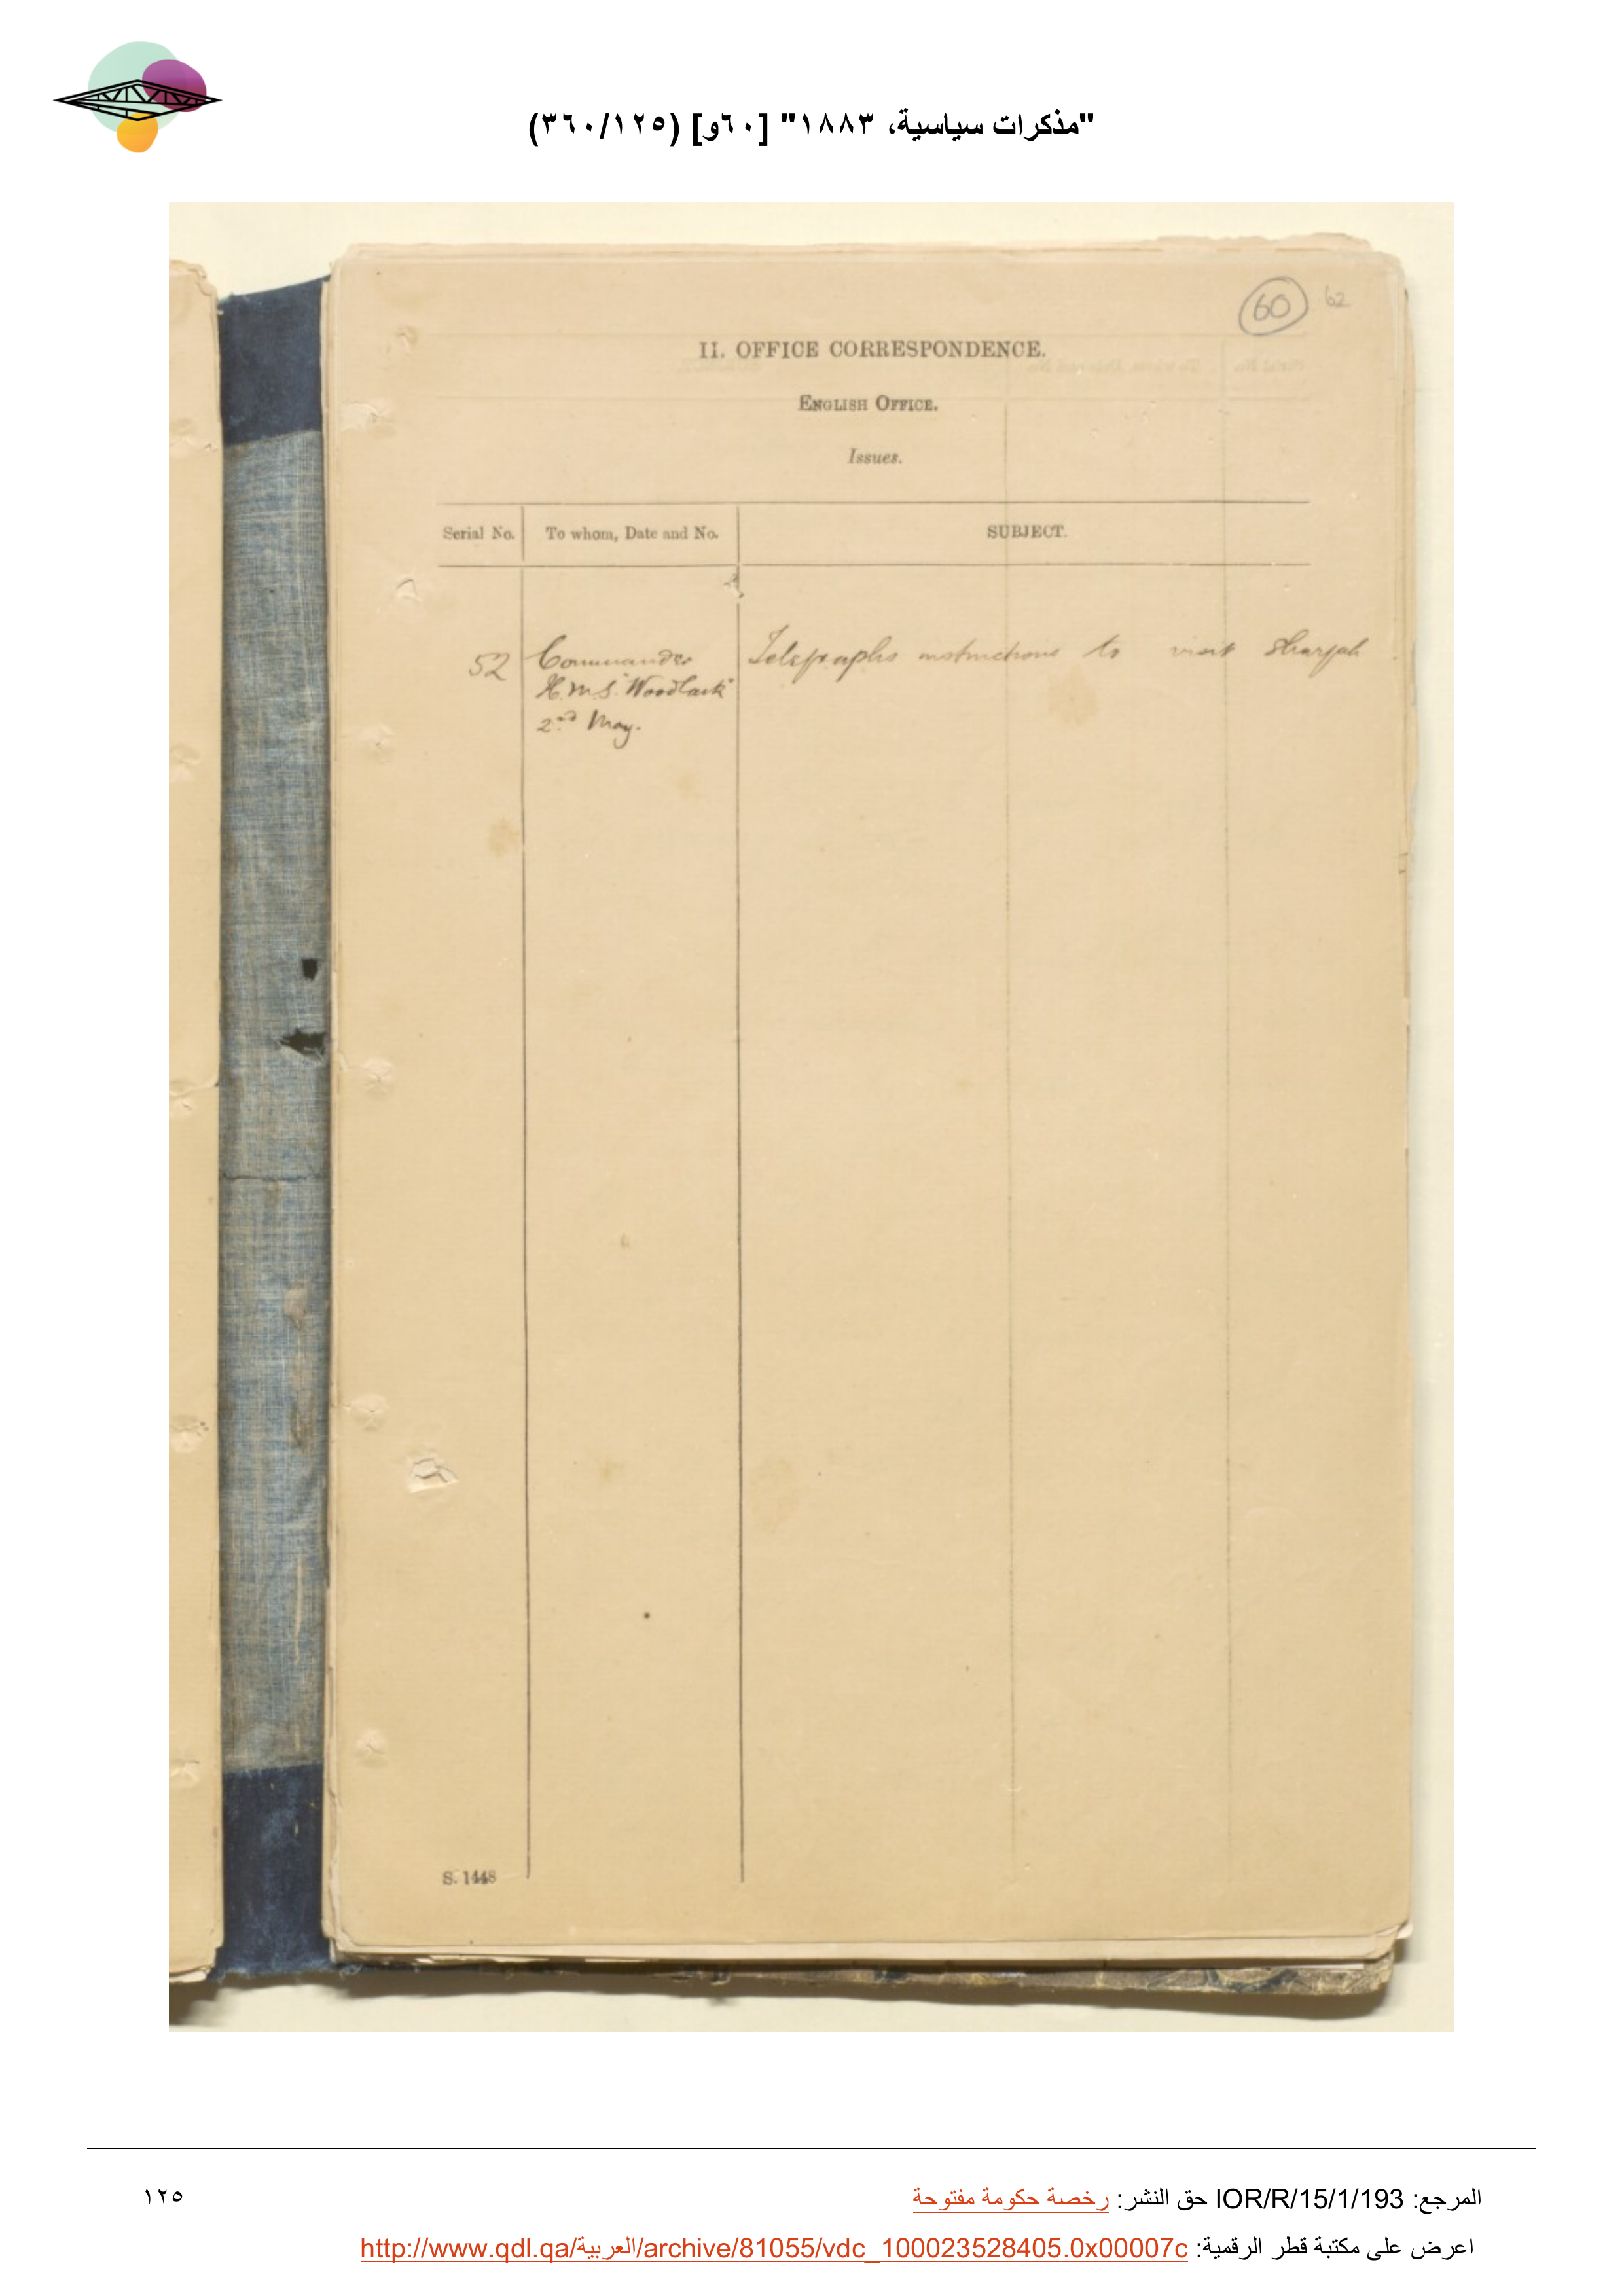 "مذكرات سياسية، ١٨٨٣" [٦٠و] (٣٦٠/١٢٥)
60 62
II. OFFICE CORRESPONDENCE.
ENGLISH OFFICE.
Issues.
Serial No. To whom, Date and No. SUBJECT.
52 Commander Telegraphs instructions to visit Shargah.
H.M.S. "Woodlark"
2nd May.
S. 1448
المرجع: IOR/R/15/1/193 حق النشر: رخصة حكومة مفتوحة
١٢٥
اعرض على مكتبة قطر الرقمية: http://www.qdl.qa/العربية/archive/81055/vdc_100023528405.0x00007c